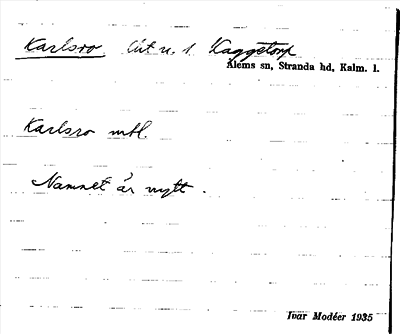 Karlsro lht u. 1 Laggetorp
Ålems sn, Stranda hd, Kalm. l.
Karlsro mtl.
Namnet är nytt.
Ivar Modéer 1935